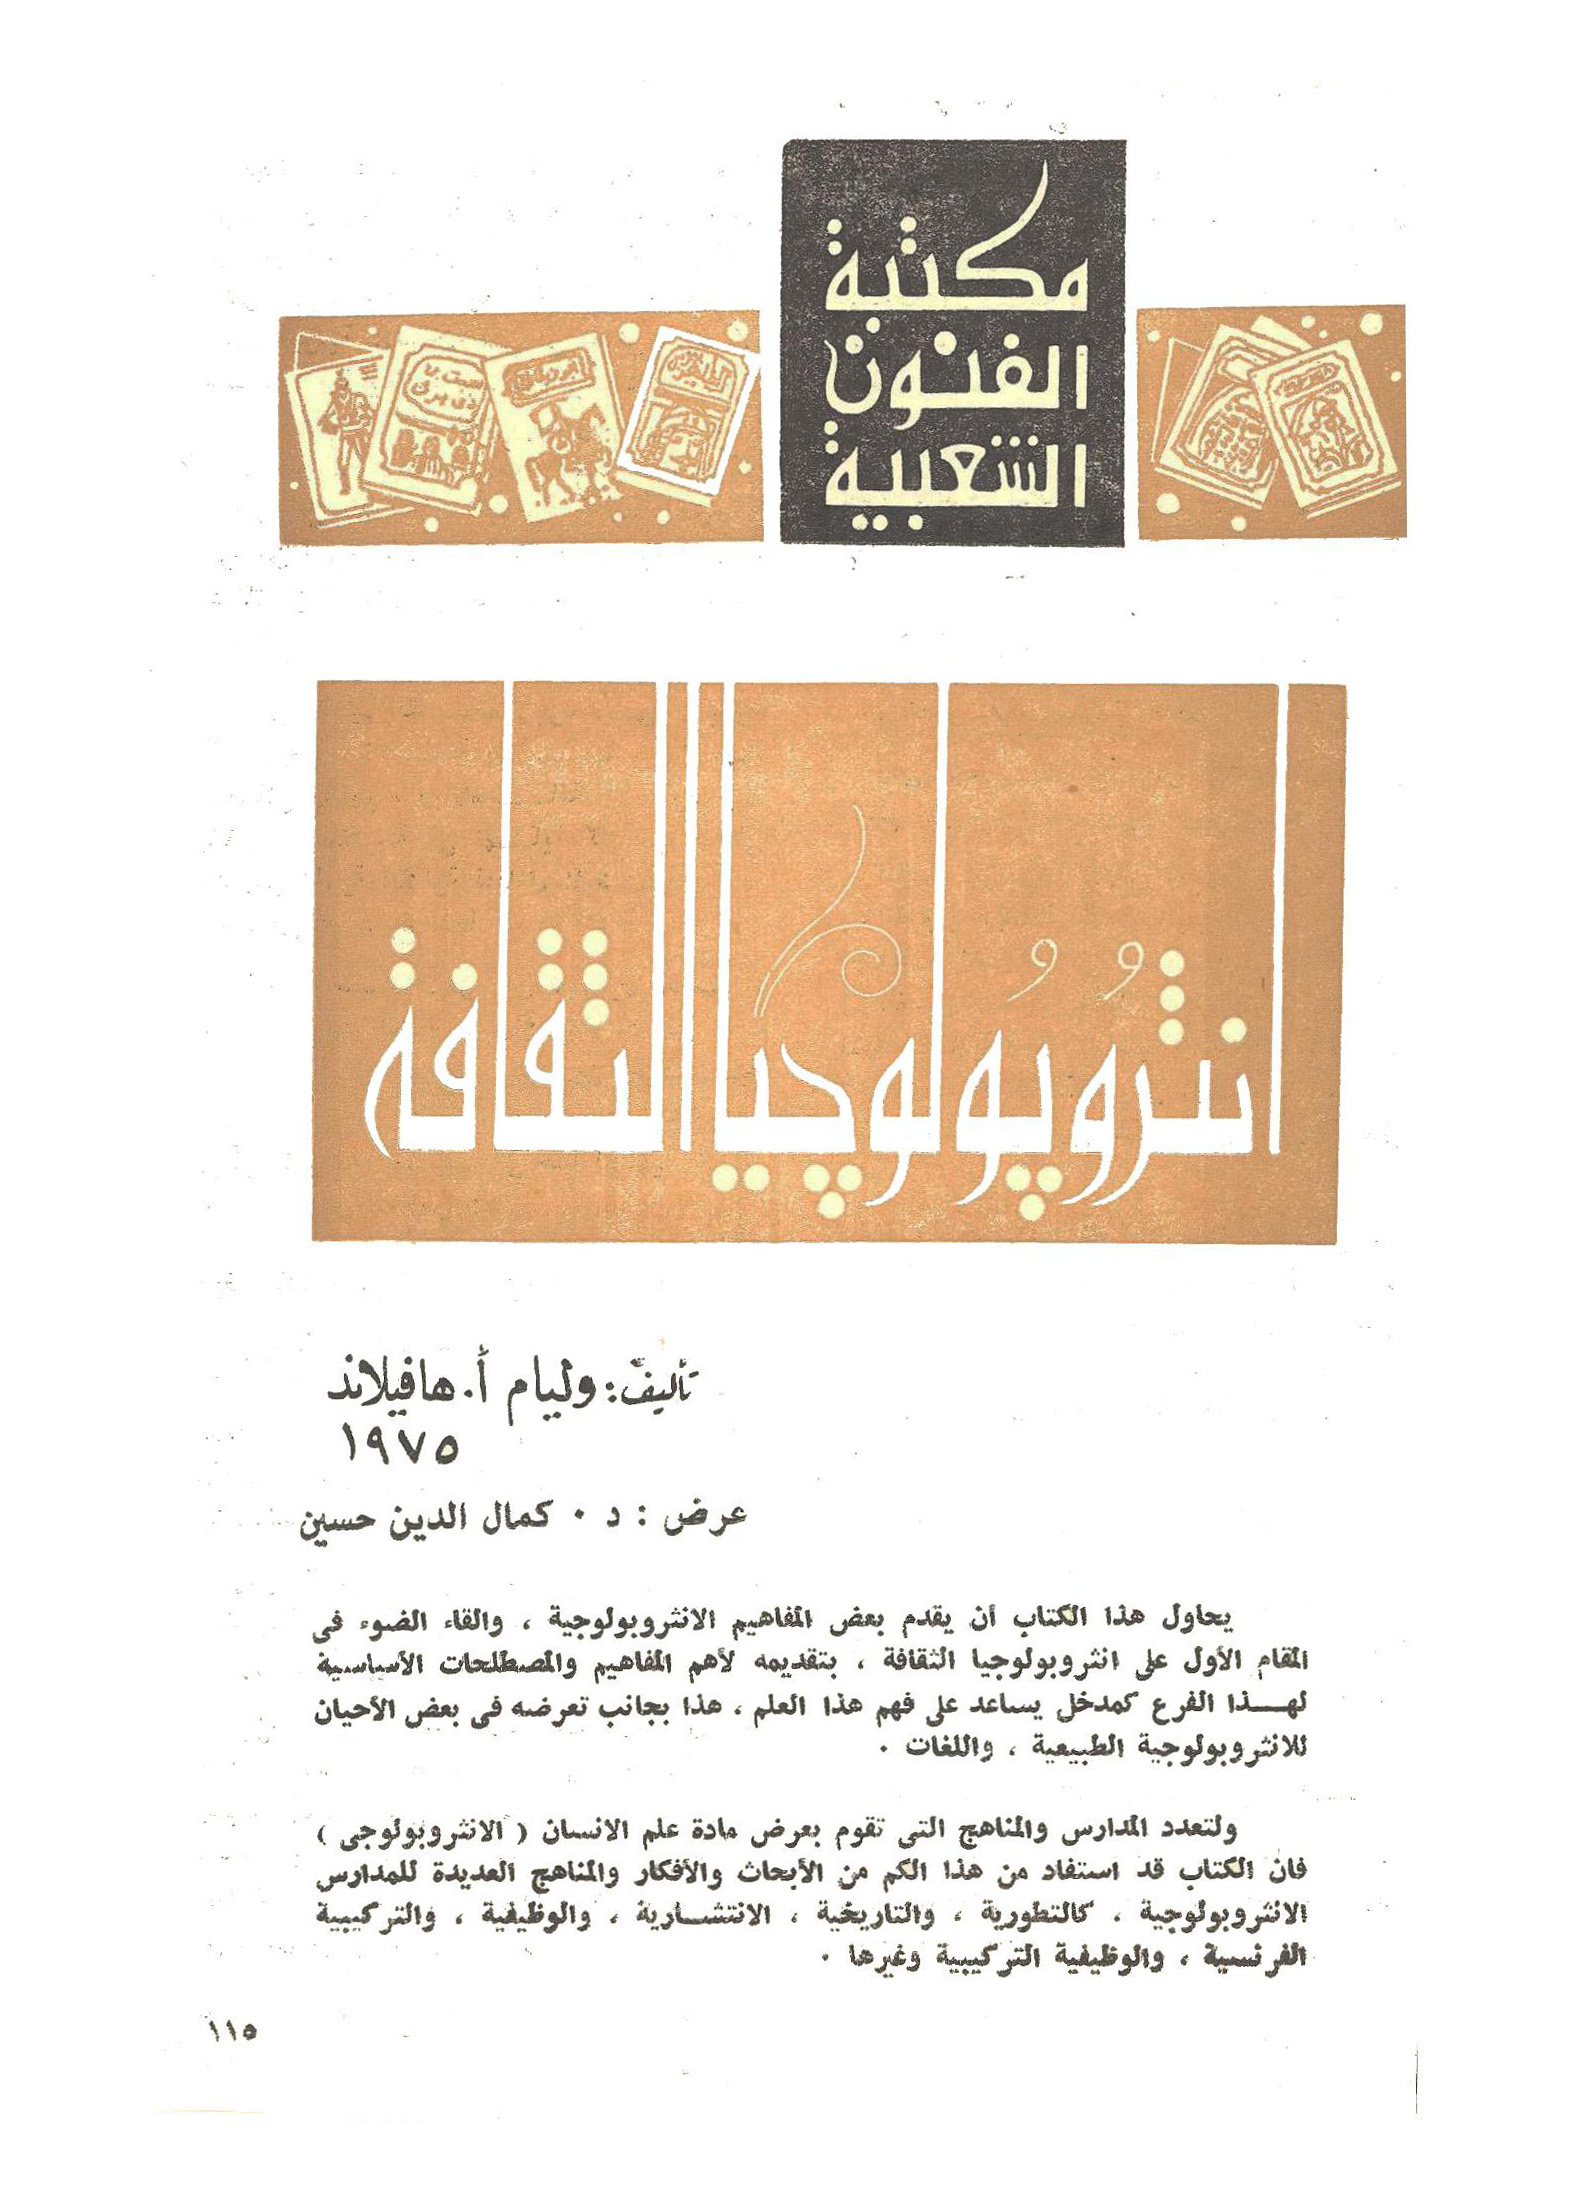 مكتبة
الفنون
الشعبية
انثروُپوُلوچيا الثقافة
تأليف: وليام أ. هافيلاند
١٩٧٥
عرض : د ٠ كمال الدين حسين
يحاول هذا الكتاب أن يقدم بعض المفاهيم الانثروبولوجية ، والقاء الضوء فى
المقام الأول على انثروبولوجيا الثقافة ، بتقديمه لأهم المفاهيم والمصطلحات الأساسية
لهـــذا الفرع كمدخل يساعد على فهم هذا العلم ، هذا بجانب تعرضه فى بعض الأحيان
للانثروبولوجية الطبيعية ، واللغات ٠
ولتعدد المدارس والمناهج التى تقوم بعرض مادة علم الانسان ( الانثروبولوجى )
فان الكتاب قد استفاد من هذا الكم من الأبحاث والأفكار والمناهج العديدة للمدارس
الانثروبولوجية ، كالتطورية ، والتاريخية ، الانتشـــارية ، والوظيفية ، والتركيبية
الفرنسية ، والوظيفية التركيبية وغيرها ٠
١١٥